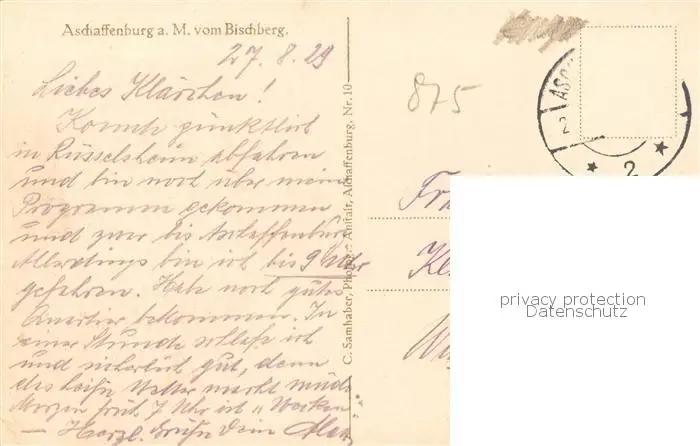 Aschaffenburg a. M. vom Bischberg.
27. 8. 29
Liebes Klärchen!
Konnte pünktlich
in Rüsselsheim abfahren
und bin noch über mein
Programm gekommen
und zwar bis Aschaffenburg
Allerdings bin ich bis 9 Uhr
gefahren. Habe noch gutes
Quartier bekommen. In
einer Stunde schlafe ich
und sicherlich gut, denn
das heiße Wetter macht müde
Morgen früh 7 Uhr ist „Wecken"
— Herzl. Grüße Dein
C. Samhaber, Anstalt, Aschaffenburg. Nr. 10
875
ASC
2
2
Fra
privacy protection
Datenschutz